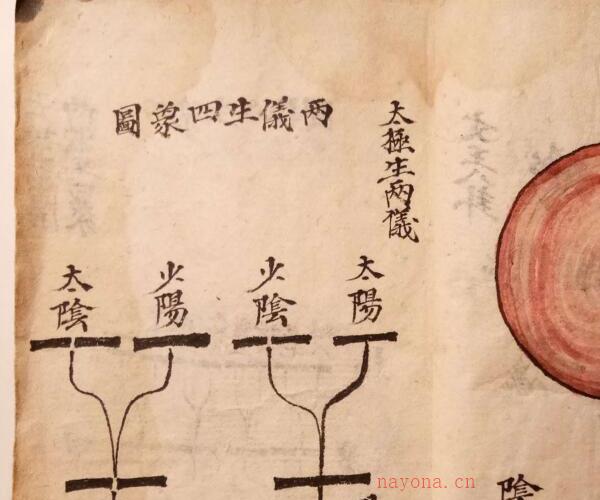 太極生兩儀
兩儀生四象圖
太陽
少陰
少陽
太陰
陰
nayona.cn